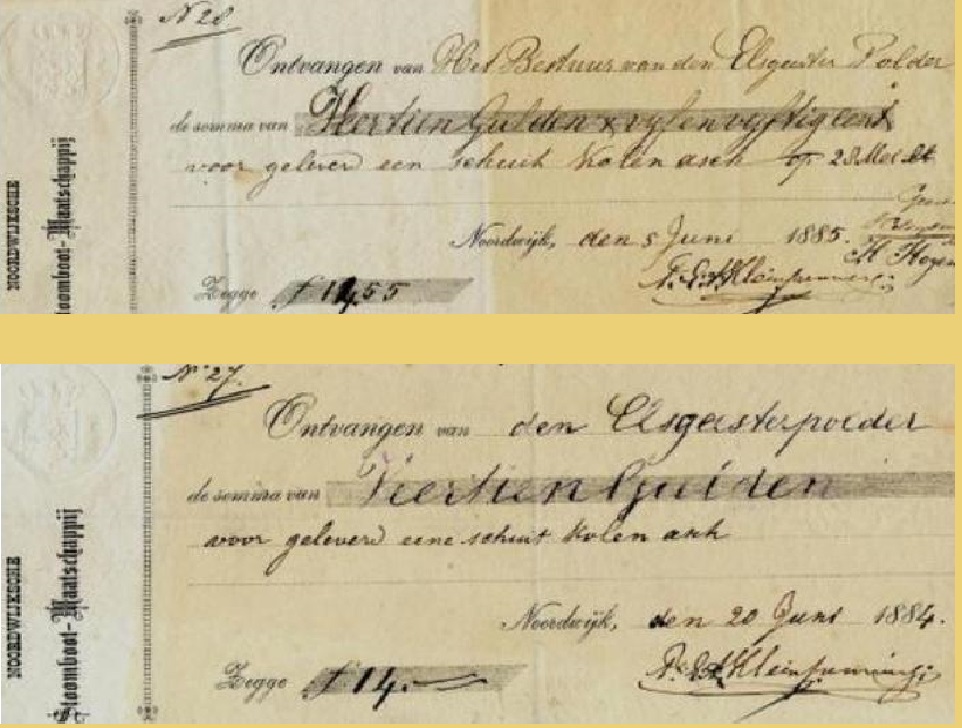 NOORDWIJKSCHE
Stoomboot-Maatschappij
No 28
Ontvangen van Het Bestuur van den Elsgeester Polder
de somma van Viertien Gulden x vyf en vyftig cent
voor gelever een schuit kolen asch op 28 Mei
Noordwijk, den 5 Juni 1885.
Zegge f 14,55
NOORDWIJKSCHE
Stoomboot-Maatschappij
No 27.
Ontvangen van den Elsgeesterpolder
de somma van Viertien Gulden
voor geleverd eene schuit kolen asch
Noordwijk, den 20 Juni 1884.
Zegge f 14.—